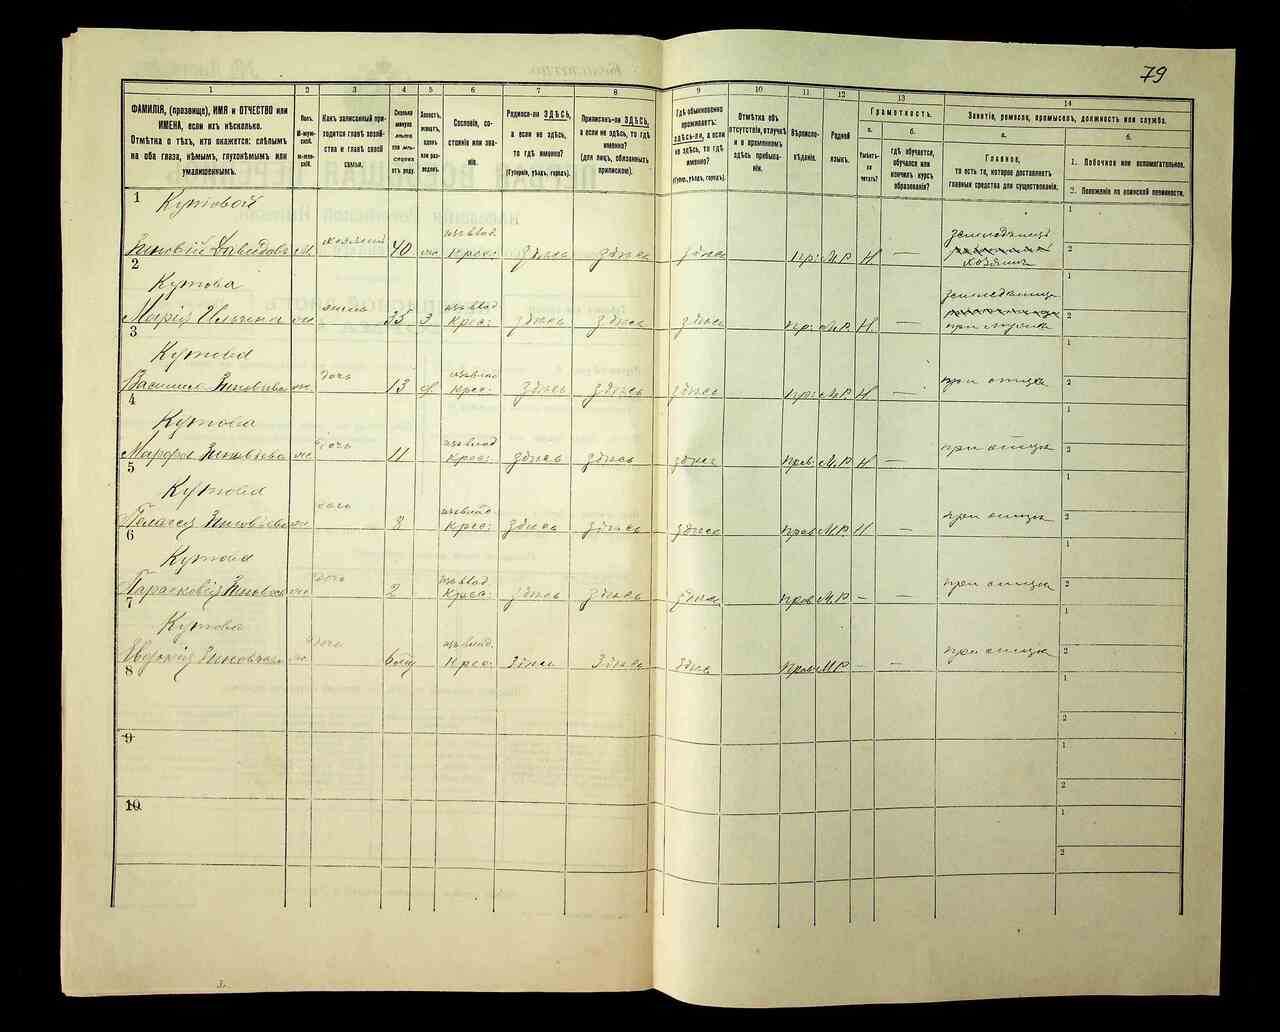 79
1 2 3 4 5 6 7 8 9 10 11 12 13 14
ФАМИЛІЯ, (прозвище), ИМЯ и ОТЧЕСТВО или ИМЕНА, если ихъ нѣсколько.
Отмѣтка о тѣхъ, кто окажется: слѣпымъ на оба глаза, нѣмымъ, глухонѣмымъ или умалишеннымъ.
Полъ. М-мужской. Ж-женскій.
Какъ записанный приходится главѣ хозяйства и главѣ своей семьи.
Сколько минуло лѣтъ или мѣсяцевъ отъ роду.
Холостъ, женатъ, вдовъ или разведенъ.
Сословіе, состояніе или званіе.
Родился-ли ЗДѢСЬ, а если не здѣсь, то гдѣ именно?
(Губернія, уѣздъ, городъ).
Приписанъ-ли ЗДѢСЬ, а если не здѣсь, то гдѣ именно?
(для лицъ, обязанныхъ припискою).
Гдѣ обыкновенно проживаетъ: здѣсь-ли, а если не здѣсь, то гдѣ именно?
(Губер., уѣздъ, городъ).
Отмѣтка объ отсутствіи, отлучкѣ и о временномъ здѣсь пребываніи.
Вѣроисповѣданіе.
Родной языкъ.
Грамотность.
а. Умѣетъ-ли читать?
б. гдѣ обучается, обучался или кончилъ курсъ образованія?
Занятіе, ремесло, промыселъ, должность или служба.
а. Главное, то есть то, которое доставляетъ главныя средства для существованія.
б.
1. Побочное или вспомогательное.
2. Положеніе по воинской повинности.
1 Кутовой
Зиновій Давидовъ М. хозяинъ 40 же изъ влад. Крес: здѣсь здѣсь здѣсь пр: М.Р. Н — земледѣлецъ хозяинъ 1 2
2 Кутова
Марія Ильина же жена 35 З изъ влад. Крес: здѣсь здѣсь здѣсь пр: М.Р. Н — при мужѣ 1 2
3 Кутова
Василиса Зиновьева же дочь 13 изъ влад Крес: здѣсь здѣсь здѣсь пр: М.Р. Н — при отцѣ 1 2
4 Кутова
Марфа Зиновьева же дочь 11 изъ влад Крес: здѣсь здѣсь здѣсь прав: М.Р. Н — при отцѣ 1 2
5 Кутова
Пелагея Зиновьева же дочь 8 изъ влад. Крес: здѣсь здѣсь здѣсь прав М.Р. Н — при отцѣ 1 2
6 Кутова
Парасковія Зиновьева же дочь 2 изъ влад. Крес: здѣсь здѣсь здѣсь прав М.Р. — — при отцѣ 1 2
7 Кутова
Евдокія Зиновьева же дочь изъ влад. Крес: здѣсь здѣсь здѣсь Прав М.Р. — — при отцѣ 1 2
8 1 2
9 1 2
10 1 2